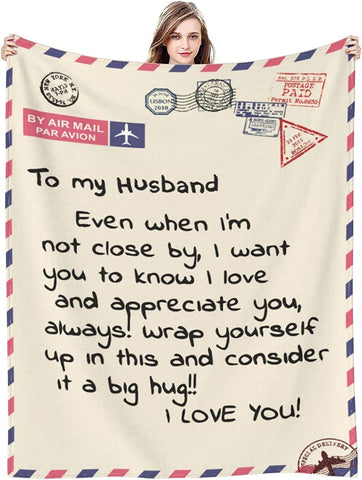 NEW YORK
BY AIR MAIL
PAR AVION
LISBON
2010
POSTAGE
PAID
Permit No.8930
To my Husband
Even when i'm
not close by, I want
you to know I love
and appreciate you,
always! wrap yourself
up in this and consider
it a big hug!!
I LOVE YOU!
SPECIAL DELIVERY